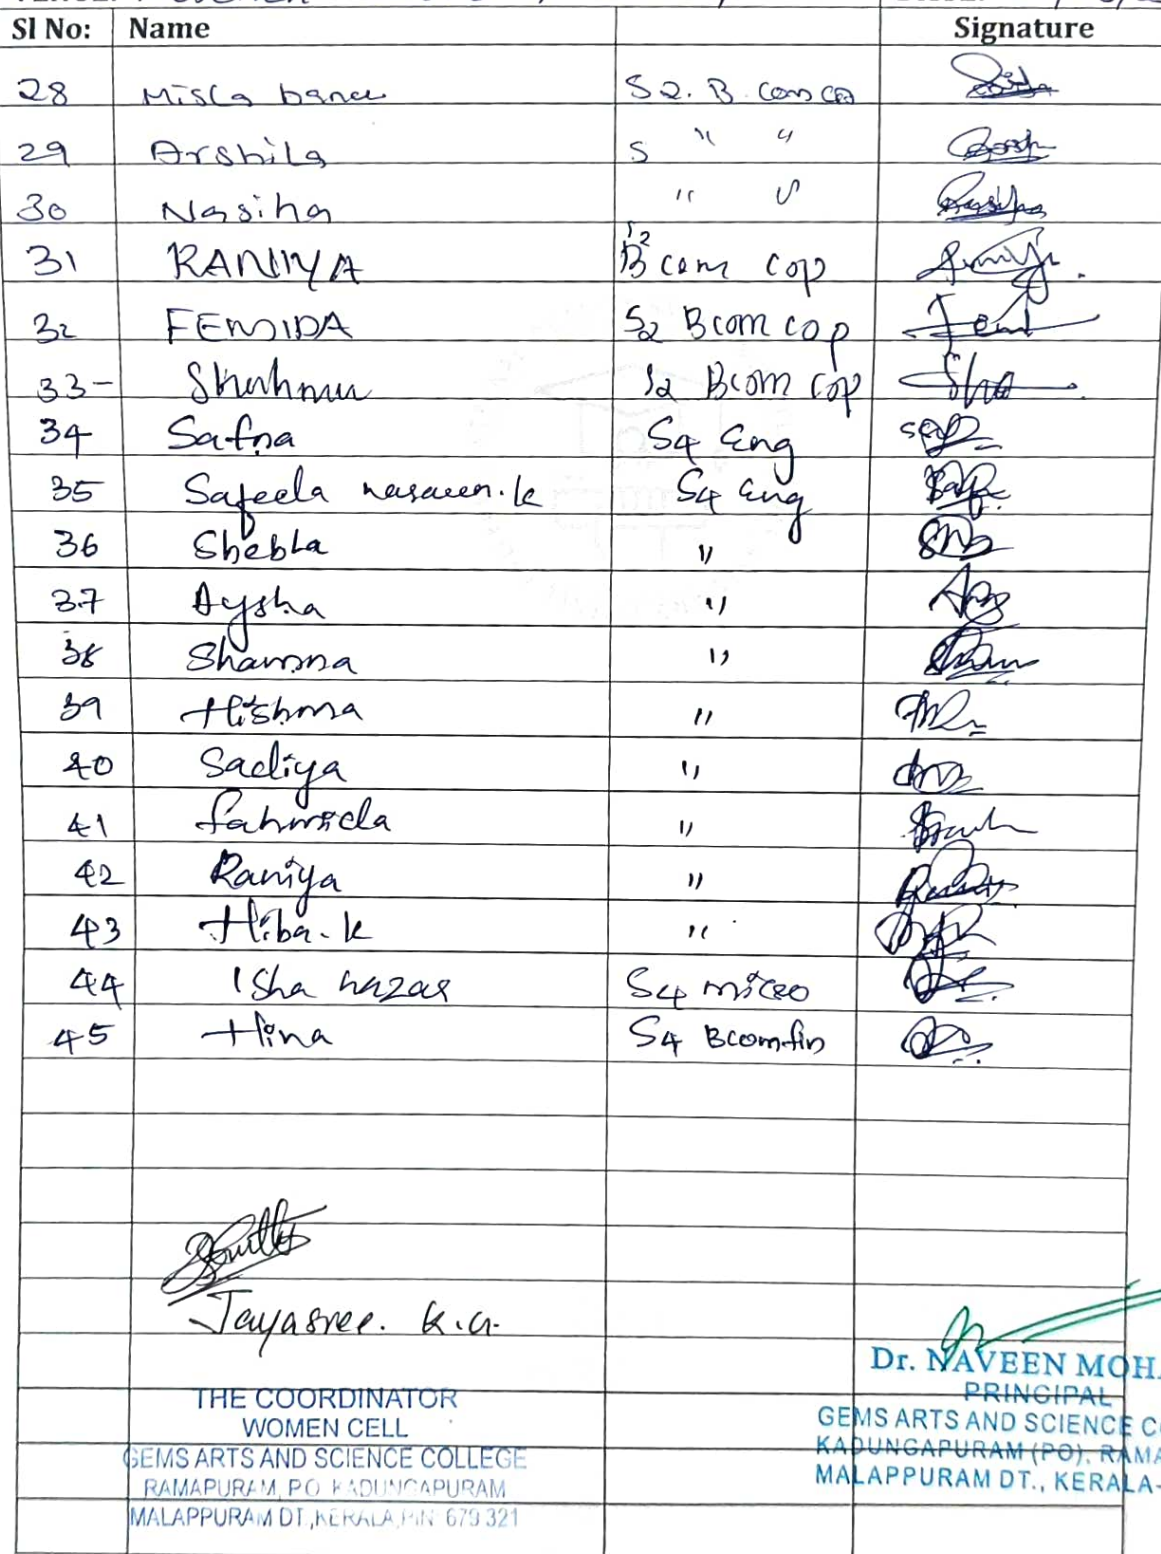 Sl No: Name Signature
28 Misla banu S2. B. com ca
29 Arshila S " "
30 Nasiha " "
31 RANIYA S2 Bcom cop
32 FEMIDA S2 Bcom cop
33- S2 Bcom cop
34 Safna S4 Eng
35 Safeela nasreen. k S4 Eng
36 Shebla "
37 Aysha "
38 Shamna "
39 Hishma "
40 Sadiya "
41 fahmida "
42 Raniya "
43 Hiba. k "
44 Isha nazar S4 micro
45 Hina S4 Bcom fin
Jayasree. K.G.
THE COORDINATOR
WOMEN CELL
GEMS ARTS AND SCIENCE COLLEGE
RAMAPURAM, PO. KADUNGAPURAM
MALAPPURAM DT., KERALA, PIN: 679 321
Dr. NAVEEN MOH
PRINCIPAL
GEMS ARTS AND SCIENCE C
KADUNGAPURAM (PO), RAMA
MALAPPURAM DT., KERALA-